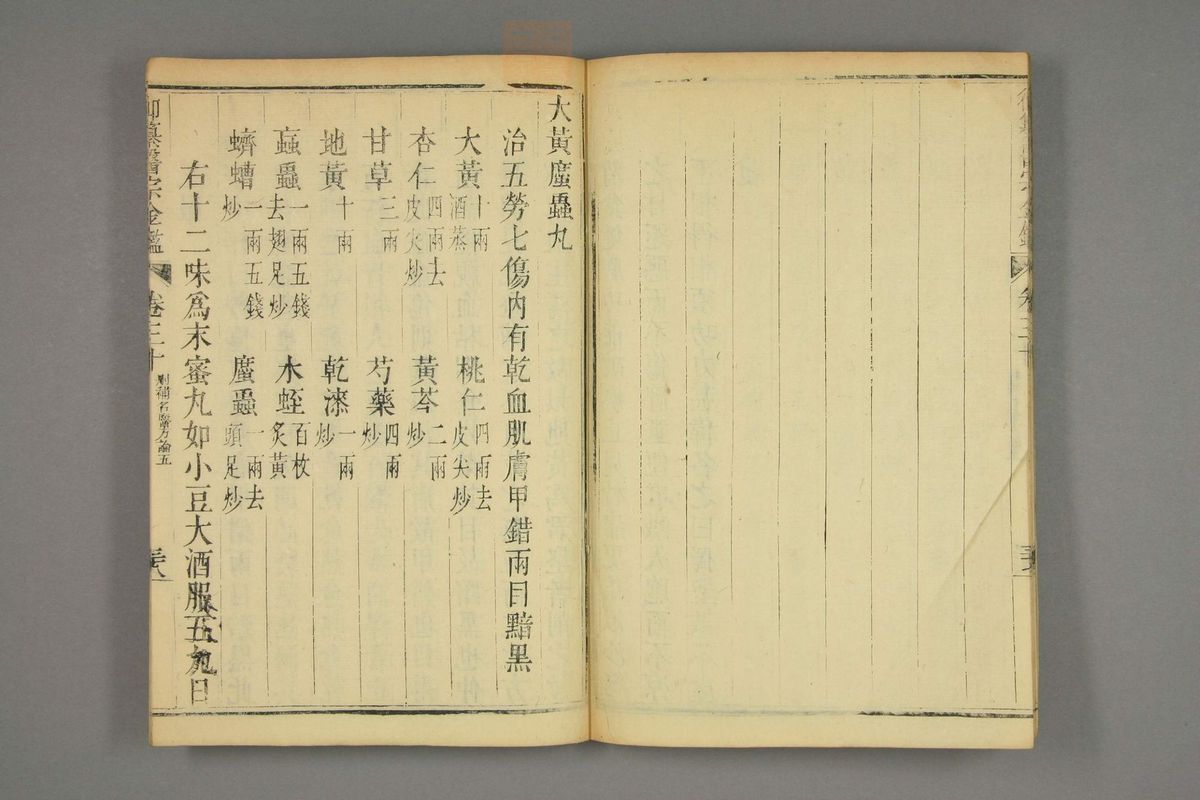 大黃䗪蟲丸
治五勞七傷內有乾血肌膚甲錯兩目黯黑
大黃十兩酒蒸 桃仁四兩去皮尖炒
杏仁四兩去皮尖炒 黃芩二兩炒
甘草三兩 芍藥四兩炒
地黃十兩 乾漆一兩炒
蝱蟲一兩五錢去翅足炒 水蛭百枚炙黃
蠐螬一兩五錢炒 䗪蟲一兩去頭足炒
右十二味爲末蜜丸如小豆大酒服五丸日
御纂醫宗金鑑 卷三十 刪補名醫方論五 三十八